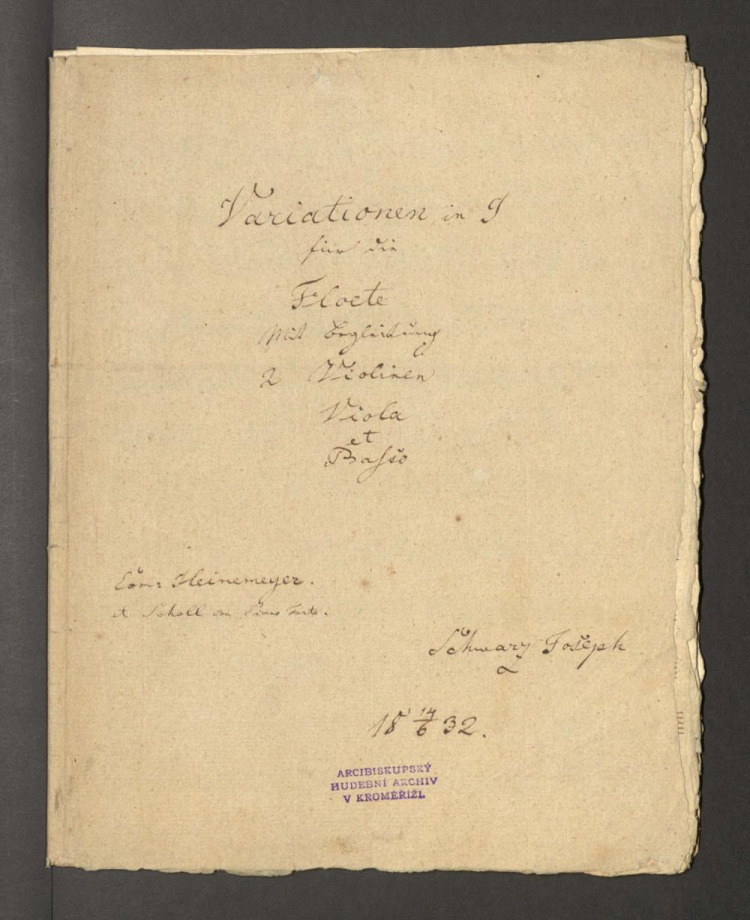 Variationen in G
für die
Floete
Mit Begleitung
2 Violinen
Viola
et
Basso
Com: Heinemeyer.
et Scholl am Piano Forte.
Schwarz Josеph
18 14/6 32.
ARCIBISKUPSKÝ
HUDEBNÍ ARCHIV
V KROMĚŘÍŽI.